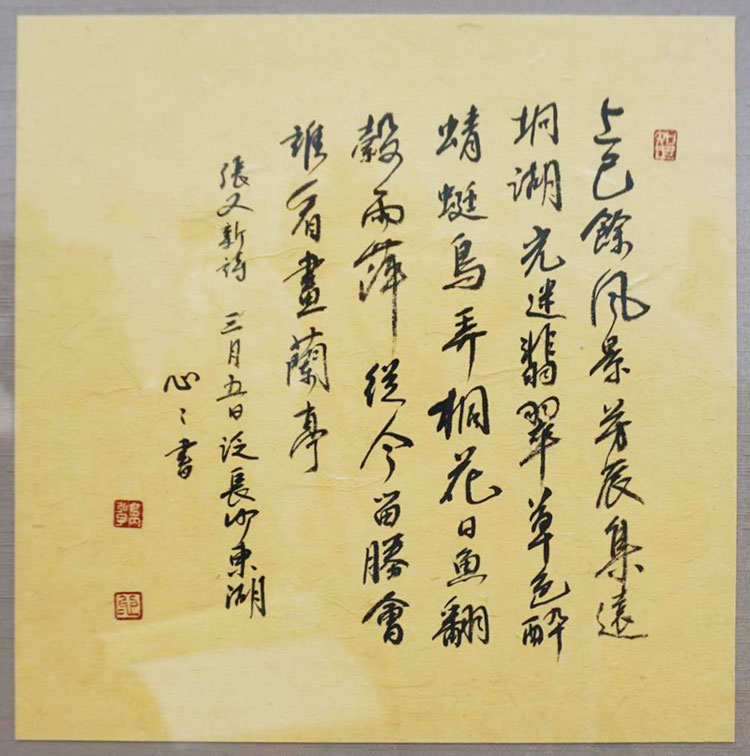 上巳餘風景芳辰集遠
坰湖光迷翡翠草色醉
蜻蜓鳥弄桐花日魚翻
穀雨萍從今留勝會
誰看畫蘭亭
張又新詩 三月五日泛長沙東湖
心之書